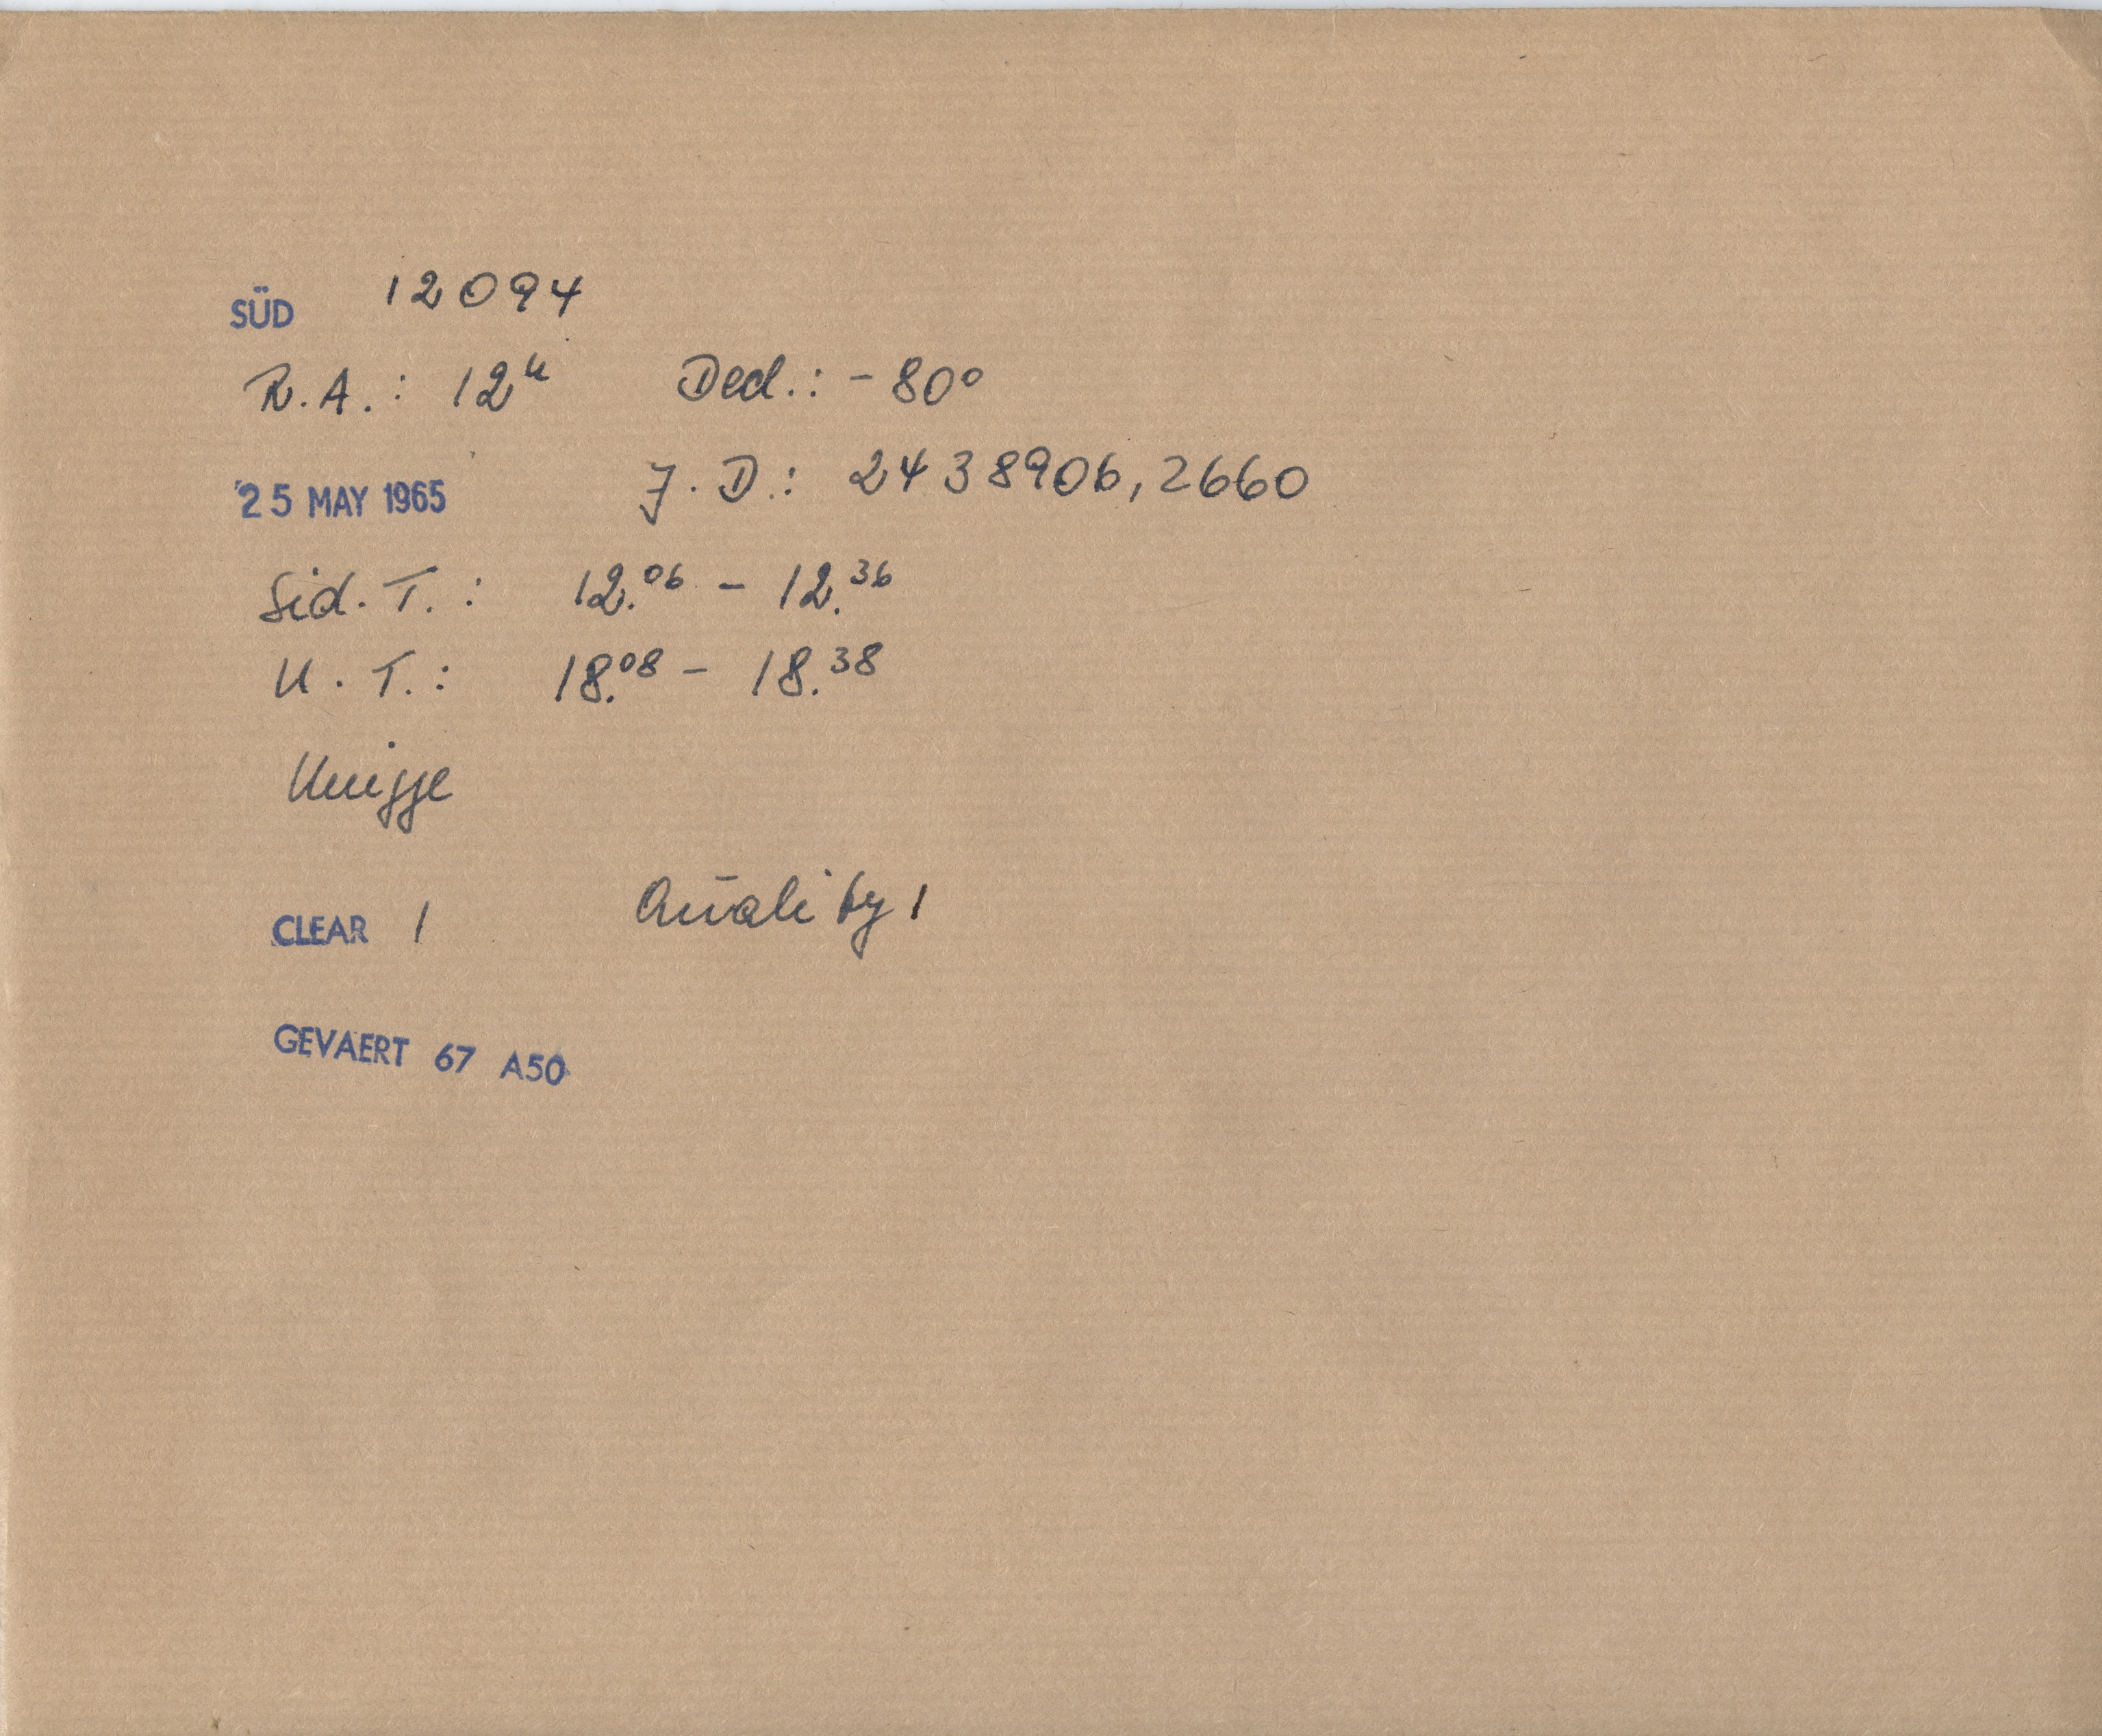 SÜD 12094
R.A.: 12ʰ Decl.: -80°
25 MAY 1965 J.D.: 2438906,2660
Sid. T.: 12.⁰⁶ - 12.³⁶
U.T.: 18.⁰⁸ - 18.³⁸
Knigge
CLEAR 1 Quality 1
GEVAERT 67 A50